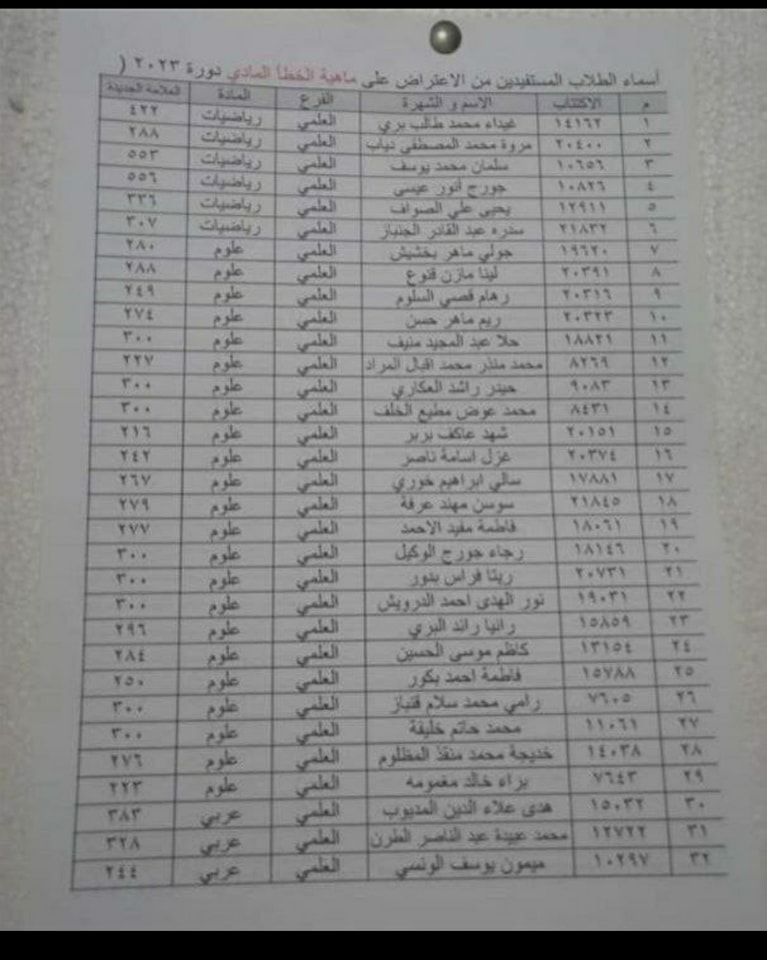 أسماء الطلاب المستفيدين من الاعتراض على ماهية الخطأ المادي دورة ٢٠٢٣ (
م الاكتتاب الاسم و الشهرة الفرع المادة العلامة الجديدة
١ ١٤١٦٢ غيداء محمد طالب بري العلمي رياضيات ٤٢٢
٢ ٢٠٤٠٠ مروة محمد المصطفى دياب العلمي رياضيات ٢٨٨
٣ ١٠٦٥٦ سلمان محمد يوسف العلمي رياضيات ٥٥٣
٤ ١٠٨٢٦ جورج أنور عيسى العلمي رياضيات ٥٥٦
٥ ١٢٩١١ يحيى علي الصواف العلمي رياضيات ٣٣٦
٦ ٢١٨٣٢ سدره عبد القادر الجنباز العلمي رياضيات ٣٠٧
٧ ١٩٦٢٠ جولي ماهر بخشيش العلمي علوم ٢٨٠
٨ ٢٠٣٩١ لينا مازن قنوع العلمي علوم ٢٨٨
٩ ٢٠٣١٦ رهام قصي السلوم العلمي علوم ٢٤٩
١٠ ٢٠٣٢٣ ريم ماهر حسن العلمي علوم ٢٧٤
١١ ١٨٨٢١ حلا عبد المجيد منيف العلمي علوم ٣٠٠
١٢ ٨٢٦٩ محمد منذر محمد اقبال المراد العلمي علوم ٢٢٧
١٣ ٩٠٨٣ حيدر راشد العكاري العلمي علوم ٣٠٠
١٤ ٨٤٣١ محمد عوض مطيع الخلف العلمي علوم ٣٠٠
١٥ ٢٠١٥١ شهد عاكف بربر العلمي علوم ٢١٦
١٦ ٢٠٣٧٤ غزل اسامة ناصر العلمي علوم ٢٤٢
١٧ ١٧٨٨١ سالي ابراهيم خوري العلمي علوم ٢٦٧
١٨ ٢١٨٤٥ سوسن مهند عرفة العلمي علوم ٢٧٩
١٩ ١٨٠٦١ فاطمة مفيد الاحمد العلمي علوم ٢٧٧
٢٠ ١٨١٤٦ رجاء جورج الوكيل العلمي علوم ٣٠٠
٢١ ٢٠٧٣١ ريتا فراس بدور العلمي علوم ٣٠٠
٢٢ ١٩٠٣١ نور الهدى احمد الدرويش العلمي علوم ٣٠٠
٢٣ ١٥٨٥٩ رانيا رائد البري العلمي علوم ٢٩٦
٢٤ ١٣١٥٤ كاظم موسى الحسين العلمي علوم ٢٨٤
٢٥ ١٥٧٨٨ فاطمة احمد بكور العلمي علوم ٢٥٠
٢٦ ٧٦٠٥ رامي محمد سلام قنباز العلمي علوم ٣٠٠
٢٧ ١١٠٦١ محمد حاتم خليفة العلمي علوم ٣٠٠
٢٨ ١٤٠٣٨ خديجة محمد منقذ المظلوم العلمي علوم ٢٧٦
٢٩ ٧٦٤٣ براء خالد مغمومه العلمي علوم ٢٢٣
٣٠ ١٥٠٣٢ هدى علاء الدين المديوب العلمي عربي ٣٨٣
٣١ ١٢٧٢٢ محمد عبيدة عبد الناصر الطرن العلمي عربي ٣٢٨
٣٢ ١٠٢٩٧ ميمون يوسف الونسي العلمي عربي ٢٤٤